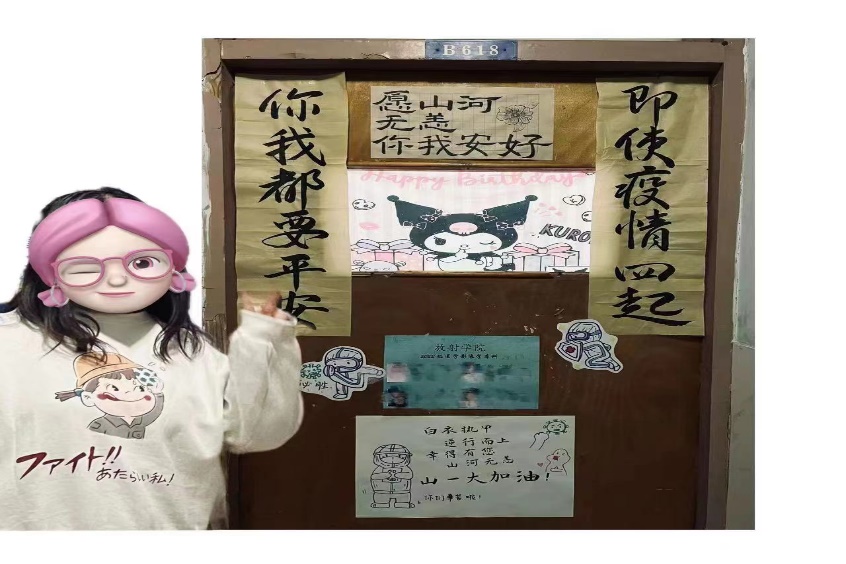 B618
即使疫情四起
你我都要平安
愿山河
无恙
你我安好
Happy Birthday
KURO
放射学院
必胜
白衣执甲
逆行而上
幸得有您
山河无恙
山一大加油!
你们辛苦啦!
ファイト!!
あたらしい私!